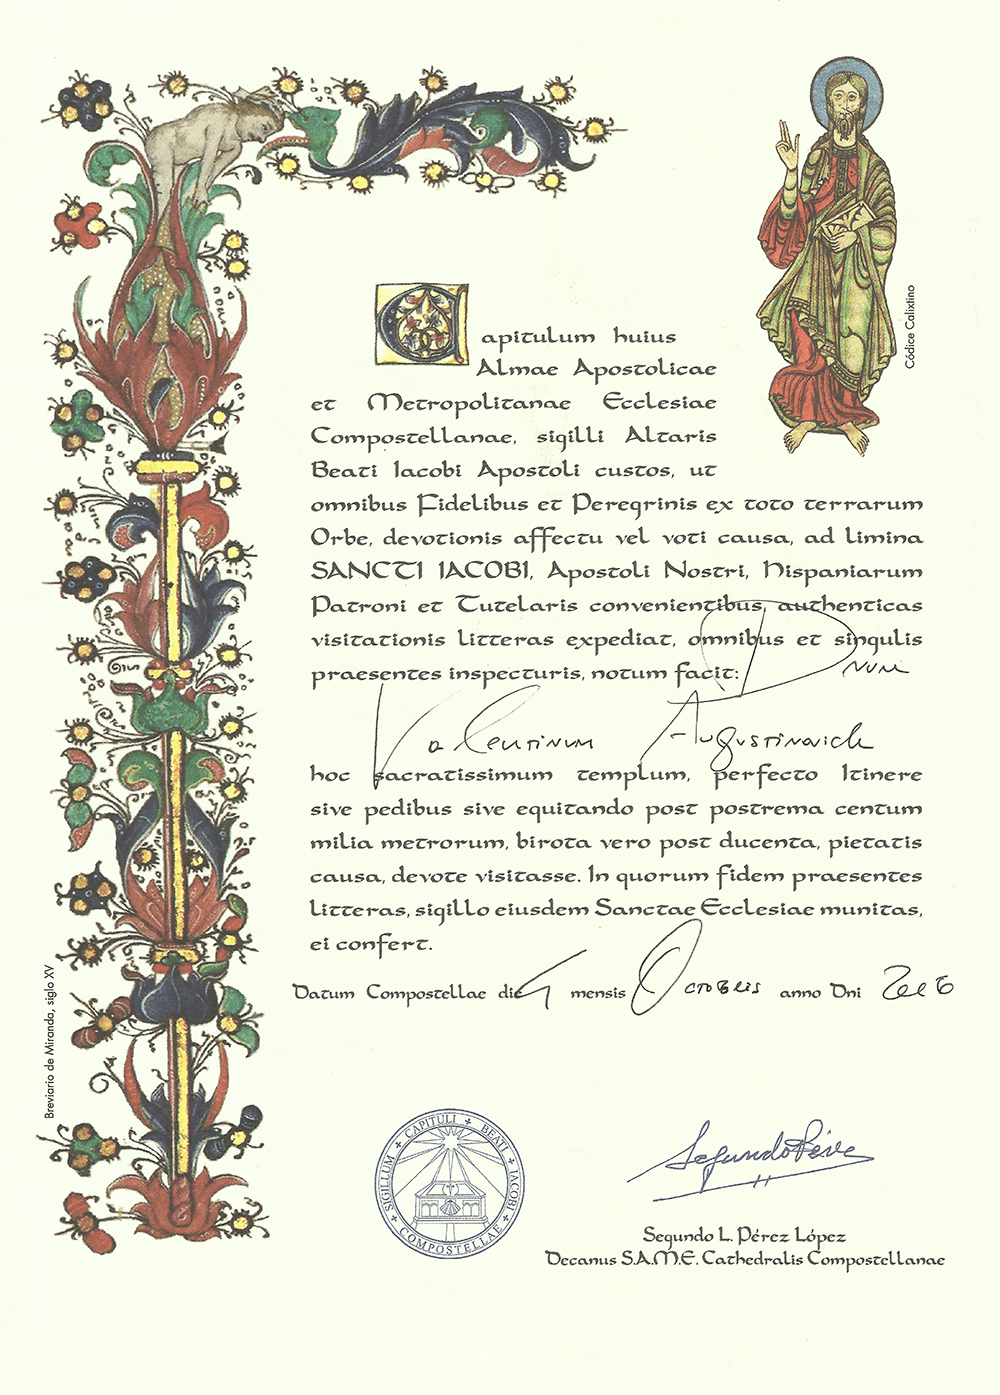 Capitulum huius
Almae Apostolicae
et Metropolitanae Ecclesiae
Compostellanae, sigilli Altaris
Beati Iacobi Apostoli custos, ut
omnibus Fidelibus et Peregrinis ex toto terrarum
Orbe, devotionis affectu vel voti causa, ad limina
SANCTI IACOBI, Apostoli Nostri, Hispaniarum
Patroni et Tutelaris convenientibus, authenticas
visitationis litteras expediat, omnibus et singulis
praesentes inspecturis, notum facit: Dnum
Valentinum Augustinovich
hoc sacratissimum templum, perfecto Itinere
sive pedibus sive equitando post postrema centum
milia metrorum, birota vero post ducenta, pietatis
causa, devote visitasse. In quorum fidem praesentes
litteras, sigillo eiusdem Sanctae Ecclesiae munitas,
ei confert.
Datum Compostellae die mensis Octobris anno Dni
Códice Calixtino
Breviario de Miranda, siglo XV
SIGILLUM + CAPITULI + BEATI + IACOBI + COMPOSTELLAE +
Segundo Pérez
Segundo L. Pérez López
Decanus S.A.M.E. Cathedralis Compostellanae